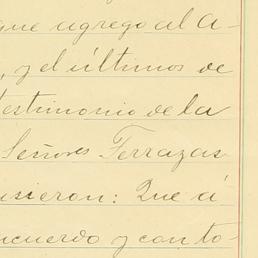 que agrego al A-
, y el últimos de
testimonio de la
Señores Terrazas
isieron: Que á
cuerdo y con to-